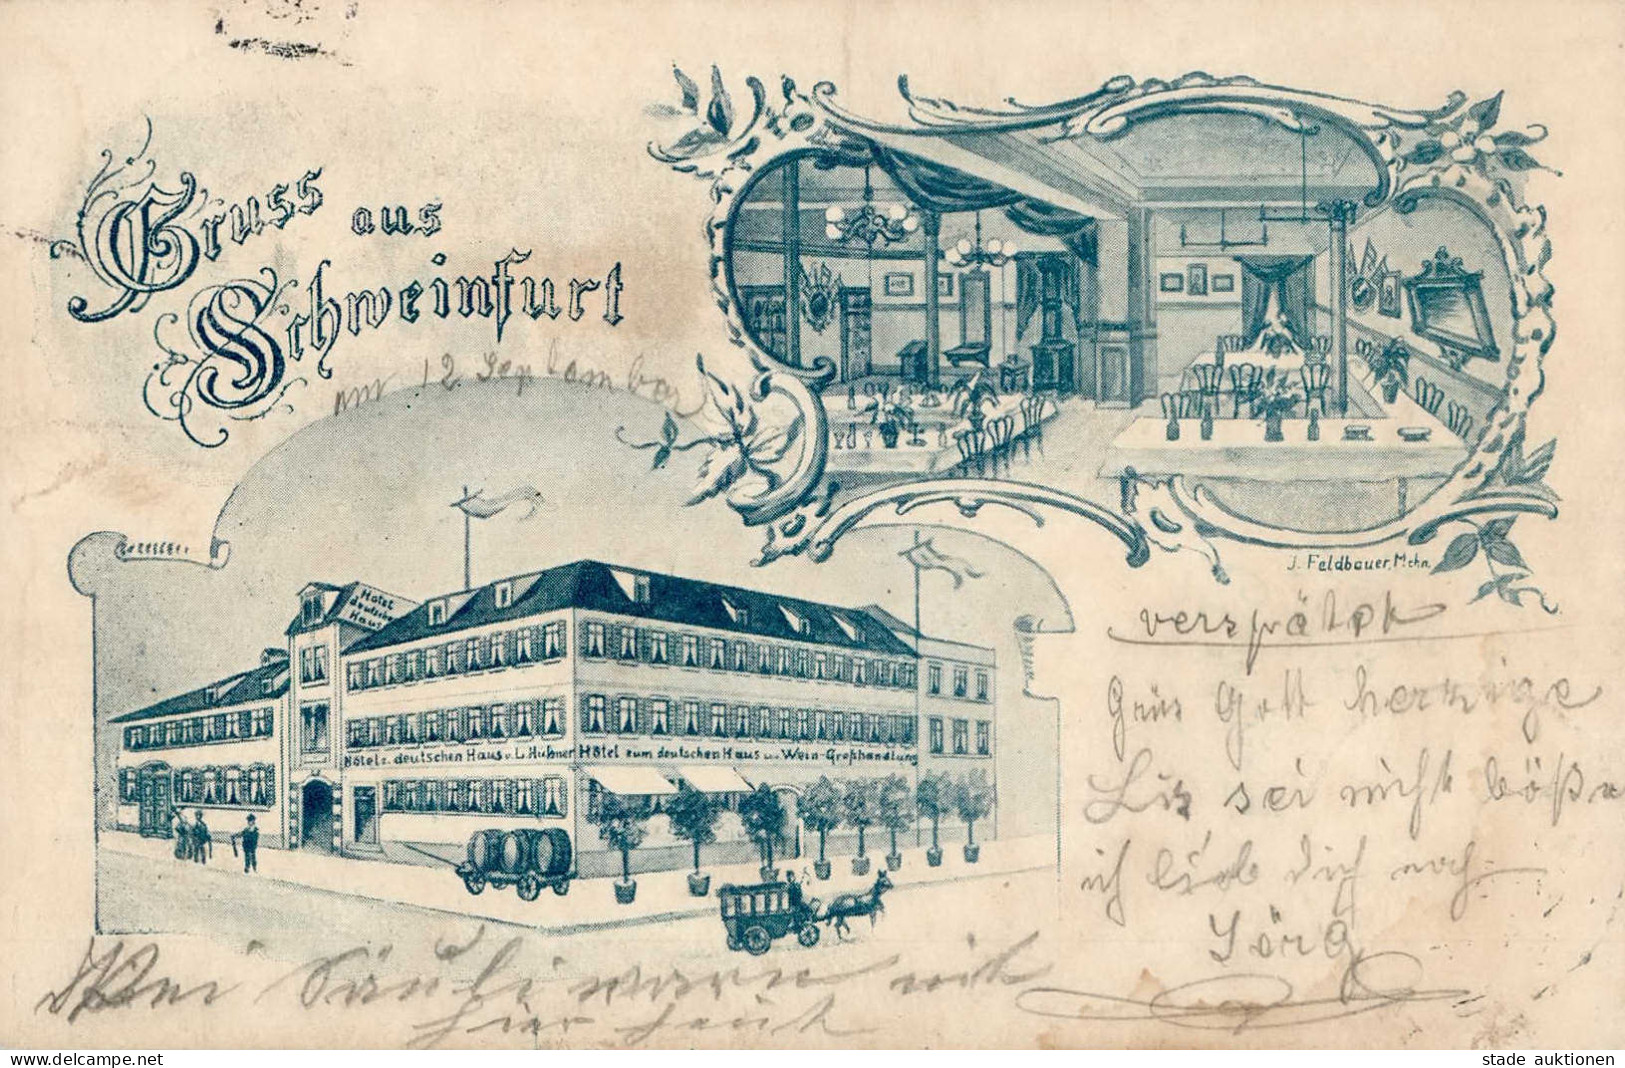 Gruss aus
Schweinfurt
am 12. September
J. Feldbauer, Mchn.
Hotel
deutsches
Haus
Hôtel z. deutschen Haus v. L. Hübner
Hôtel zum deutschen Haus u. Wein-Großhandlung
verspätet
Grüs Gott herzige
Lis sei nicht böße
ich lieb dich noch
Jörg
Bei Säuli waren wir
hier heut
delcampe.net
stade auktionen